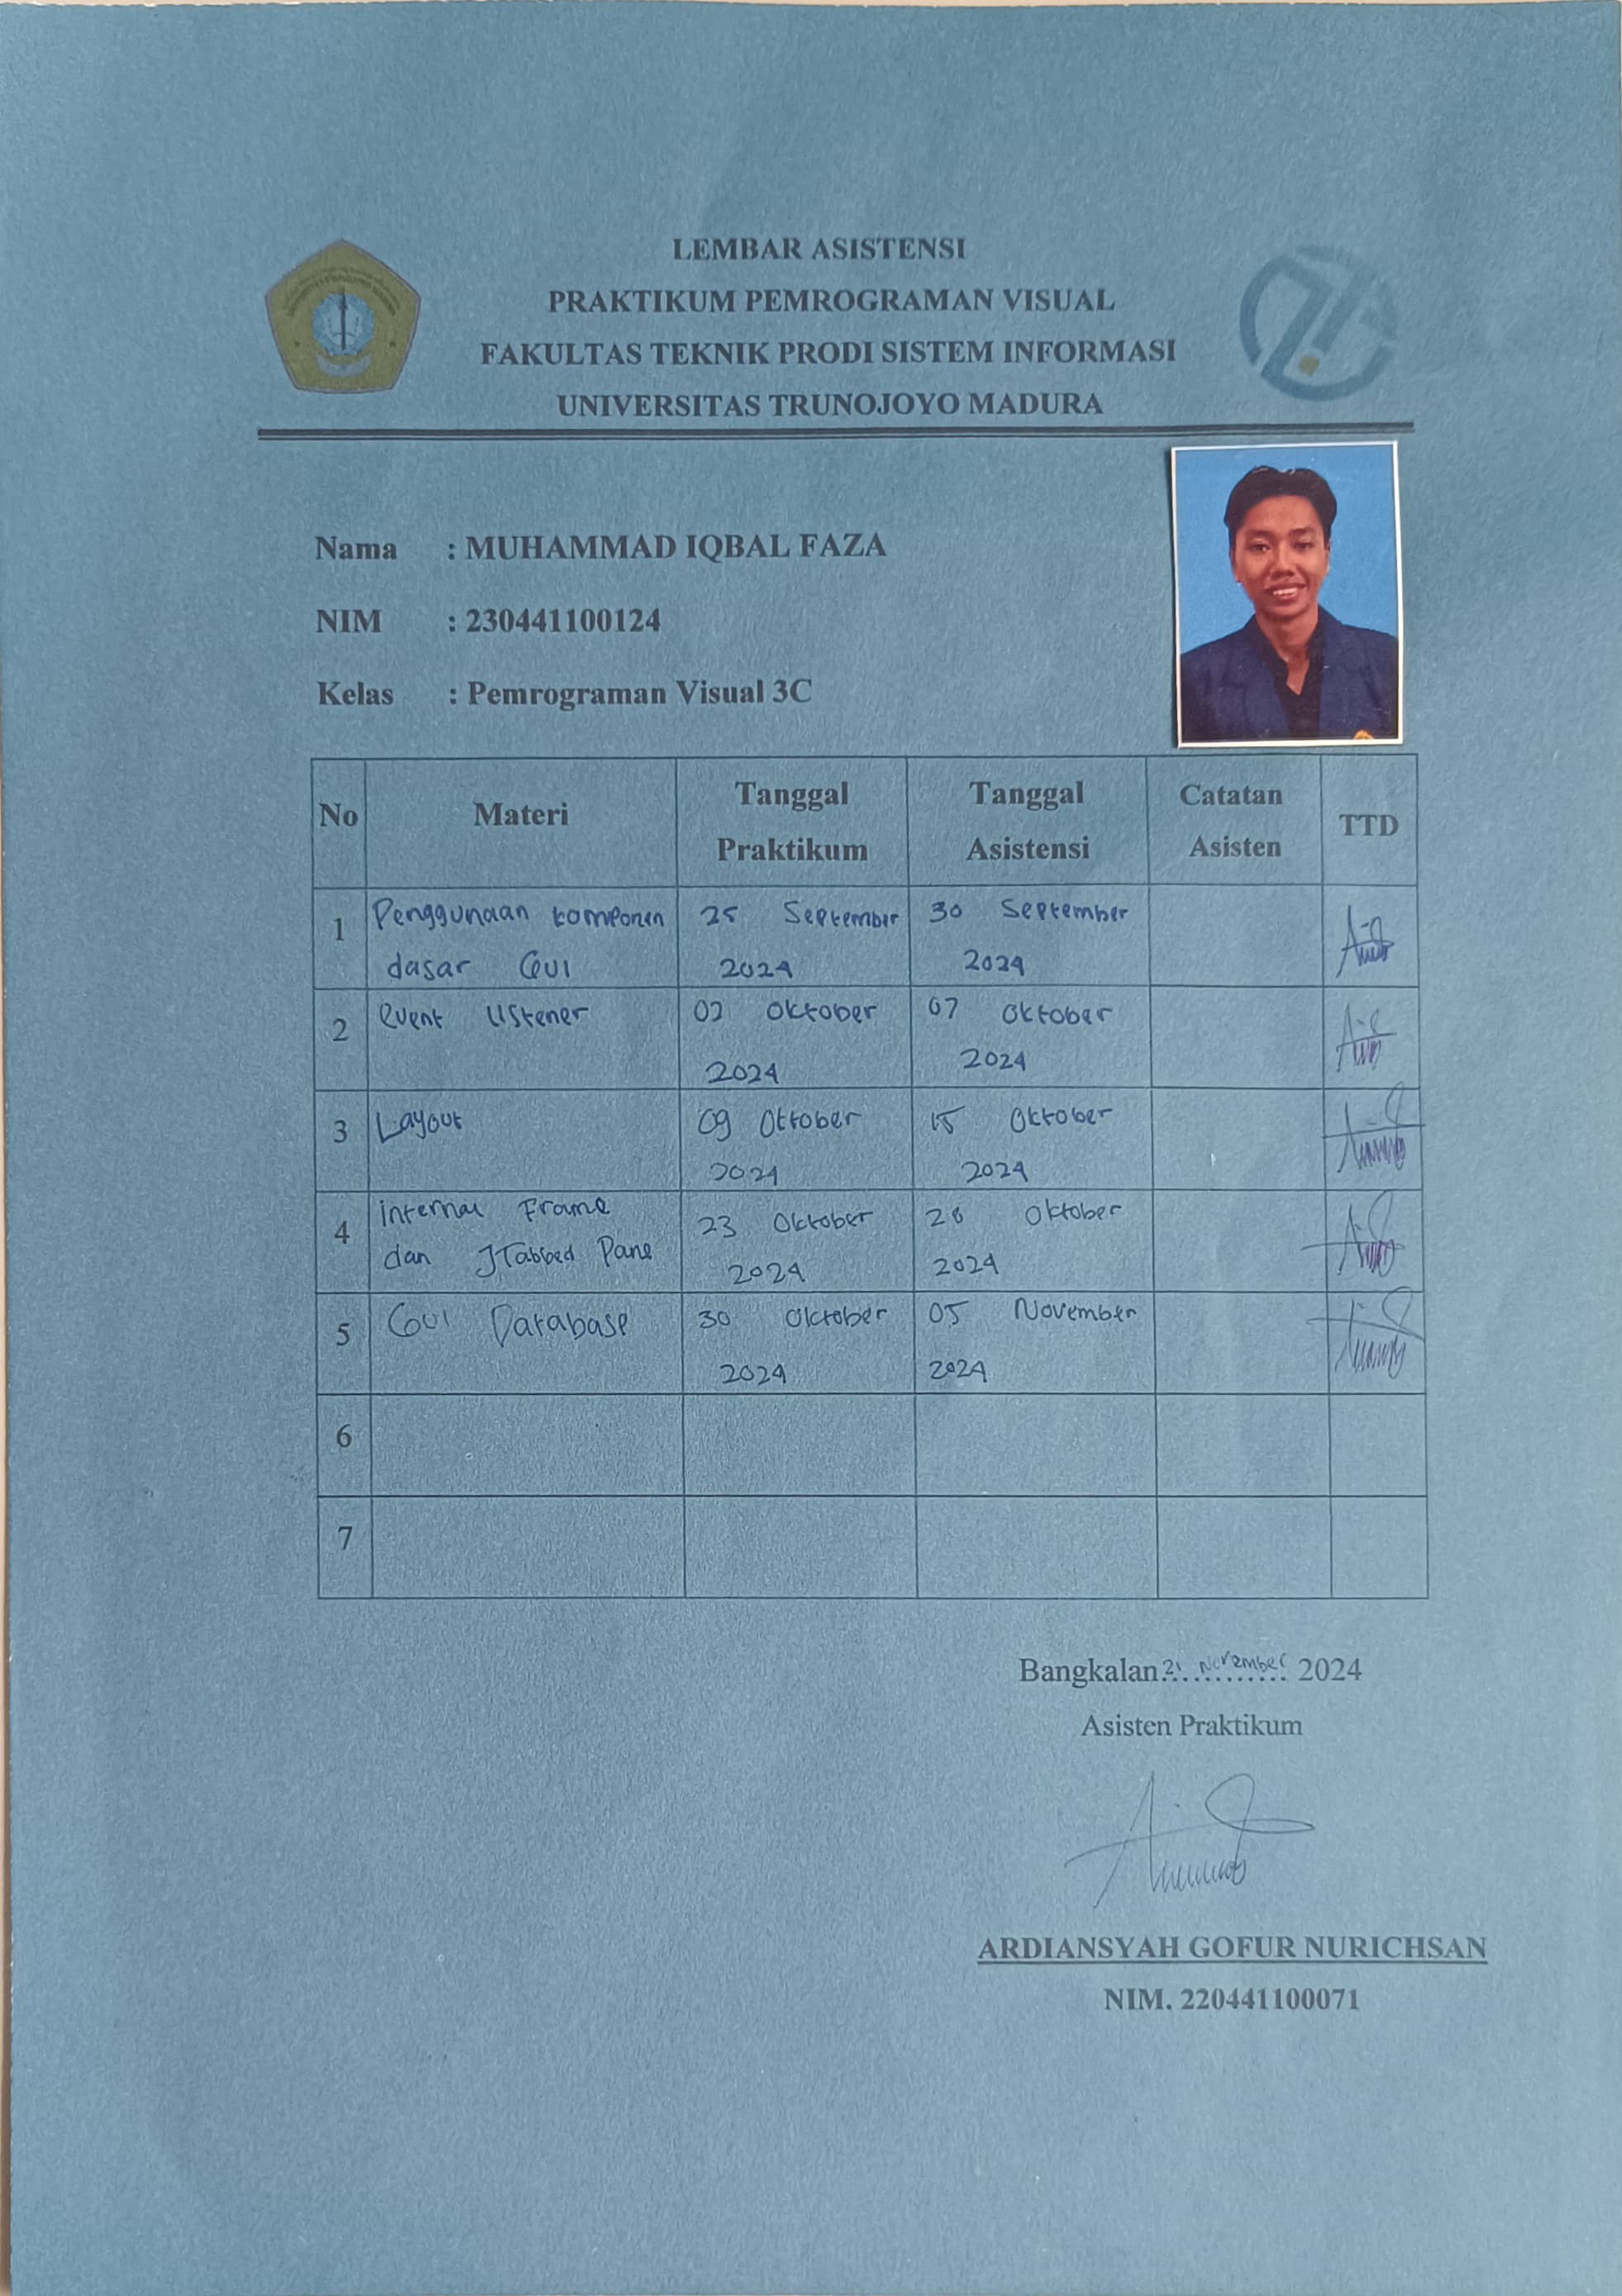 LEMBAR ASISTENSI
PRAKTIKUM PEMROGRAMAN VISUAL
FAKULTAS TEKNIK PRODI SISTEM INFORMASI
UNIVERSITAS TRUNOJOYO MADURA
Nama : MUHAMMAD IQBAL FAZA
NIM : 230441100124
Kelas : Pemrograman Visual 3C
No Materi Tanggal Praktikum Tanggal Asistensi Catatan Asisten TTD
1 Penggunaan komponen 25 September 30 September
dasar GUI 2024 2024
2 Event Listener 02 Oktober 07 Oktober
2024 2024
3 Layout 09 Oktober 15 Oktober
2024 2024
4 internal Frame 23 Oktober 28 Oktober
dan JTabbed Pane 2024 2024
5 GUI Database 30 Oktober 05 November
2024 2024
6
7
Bangkalan 21 November 2024
Asisten Praktikum
ARDIANSYAH GOFUR NURICHSAN
NIM. 220441100071